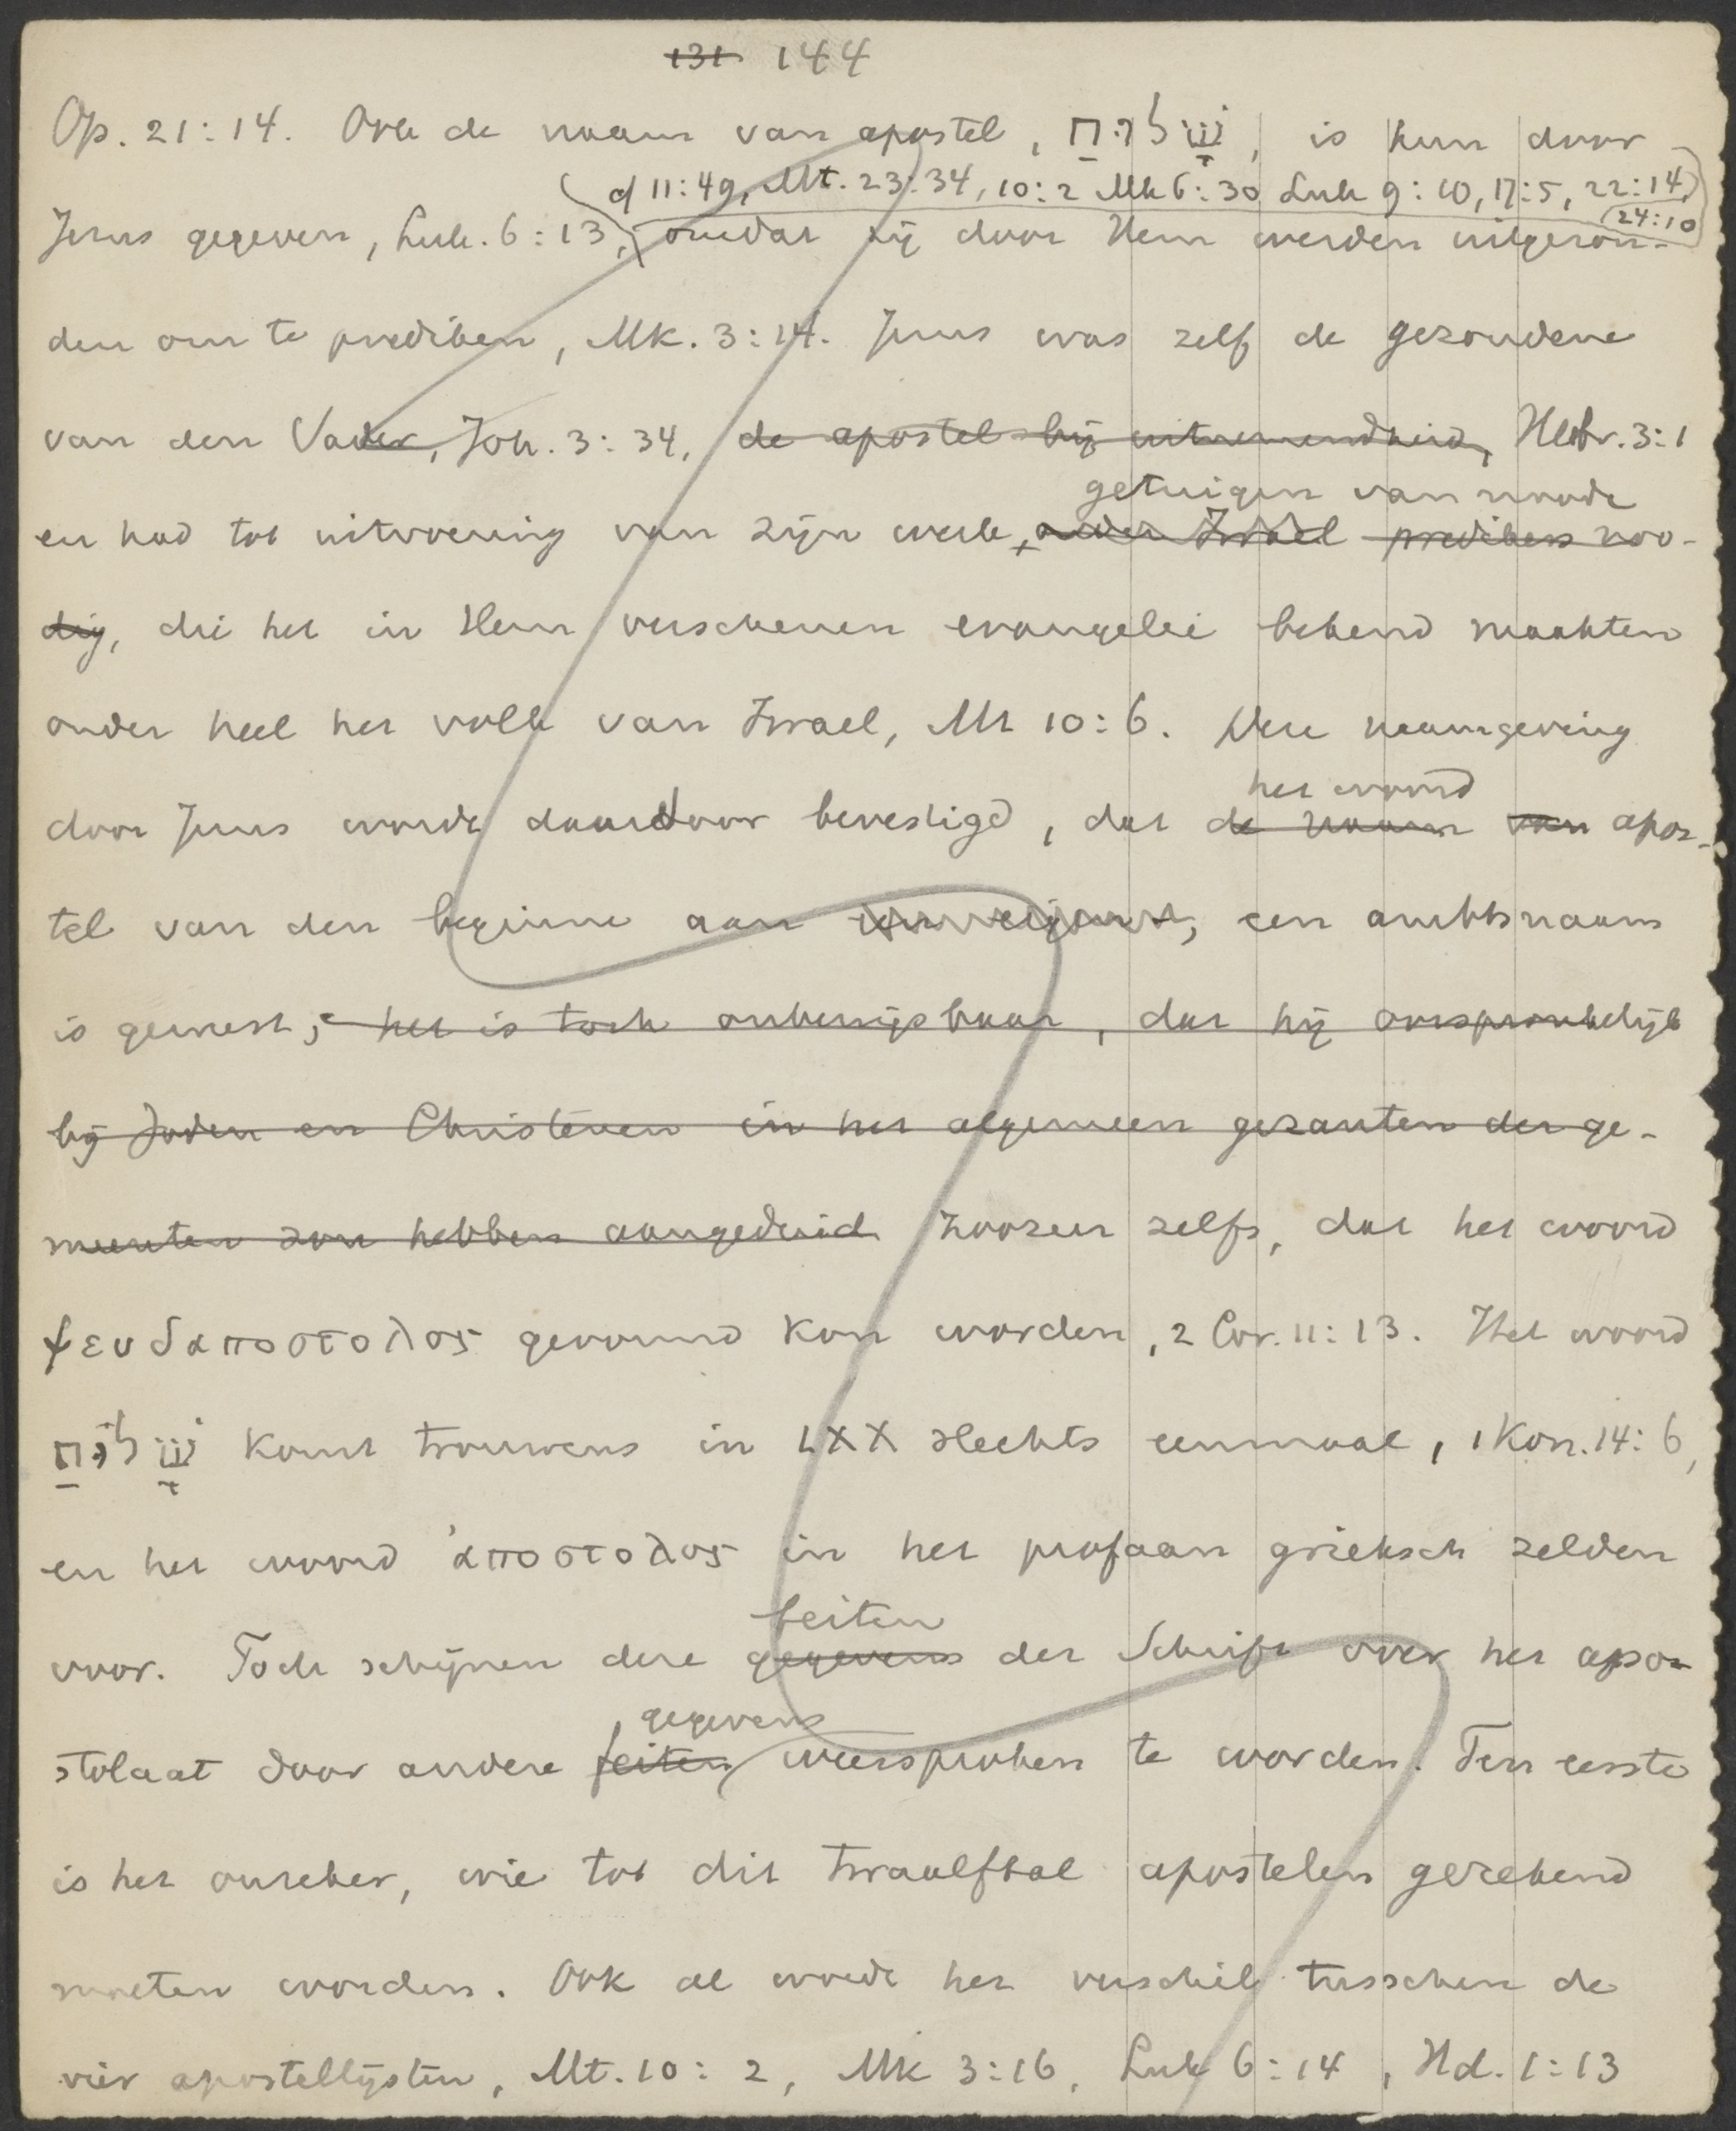 131 144
Op. 21:14. Ook de naam van apostel, שָׁלִיחַ, is hun door
cf 11:49, Mt. 23:34, 10:2 Mk 6:30 Luk 9:10, 17:5, 22:14,
24:10
Jezus gegeven, Luk. 6:13, omdat zij door Hem werden uitgezon-
den om te prediken, Mk. 3:14. Jezus was zelf de gezondene
van den Vader, Joh. 3:34, de apostel bij uitnemendheid, Hebr. 3:1
getuigen van noode
en had tot uitvoering van zijn werk, onder Israel predikers noo-
dig, die het in Hem verschenen evangelie bekend maakten
onder heel het volk van Israel, Mt 10:6. Deze naamgeving
het woord
door Jezus wordt daardoor bevestigd, dat de naam van apos-
tel van den beginne aan een eigen, een ambtsnaam
is geweest; het is toch onbewijsbaar, dat hij oorspronkelijk
bij Joden en Christenen in het algemeen gezanten der ge-
meenten zou hebben aangeduid zoozeer zelfs, dat het woord
ψευδαποστολος gevormd kon worden, 2 Cor. 11:13. Het woord
שָׁלִיחַ komt trouwens in LXX slechts eenmaal, 1 Kon. 14:6,
en het woord ἀποστολος in het profaan grieksch zelden
feiten
voor. Toch schijnen deze gegevens der Schrift over het apo-
gegevens
stolaat door andere feiten weersproken te worden. Ten eerste
is het onzeker, wie tot dit twaalftal apostelen gerekend
moeten worden. Ook al wordt het verschil tusschen de
vier apostellijsten, Mt. 10:2, Mk 3:16, Luk 6:14, Hd. 1:13